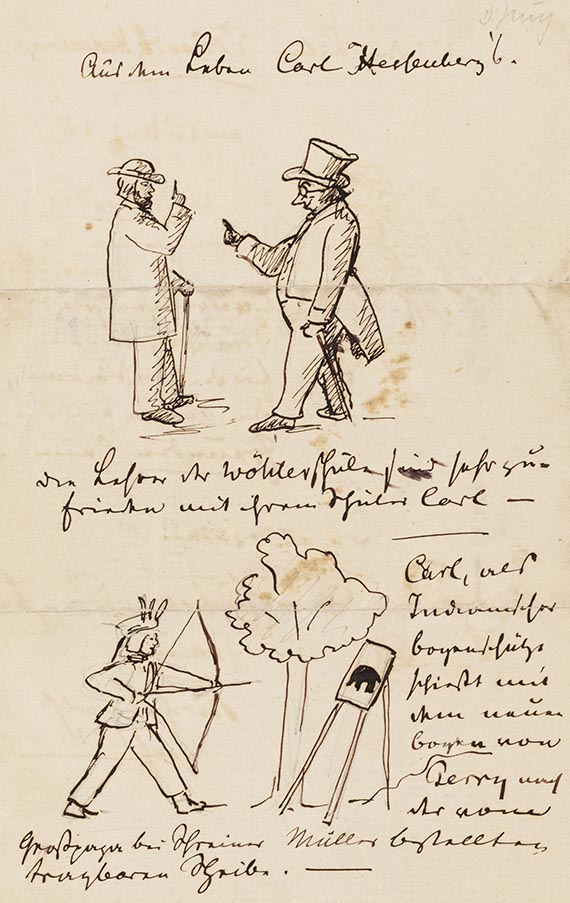 D. Jung
Aus dem Leben Carl Hessenberg's.
die Lehrer der Wöhlerschule sind sehr zu=
frieden mit ihrem Schüler Carl —
Carl, als
Indianischer
bogenschütze
schießt mit
dem neuen
bogen von
Perry nach
der vom
Großpapa bei Schreiner Müller bestellten
tragbaren Scheibe. —